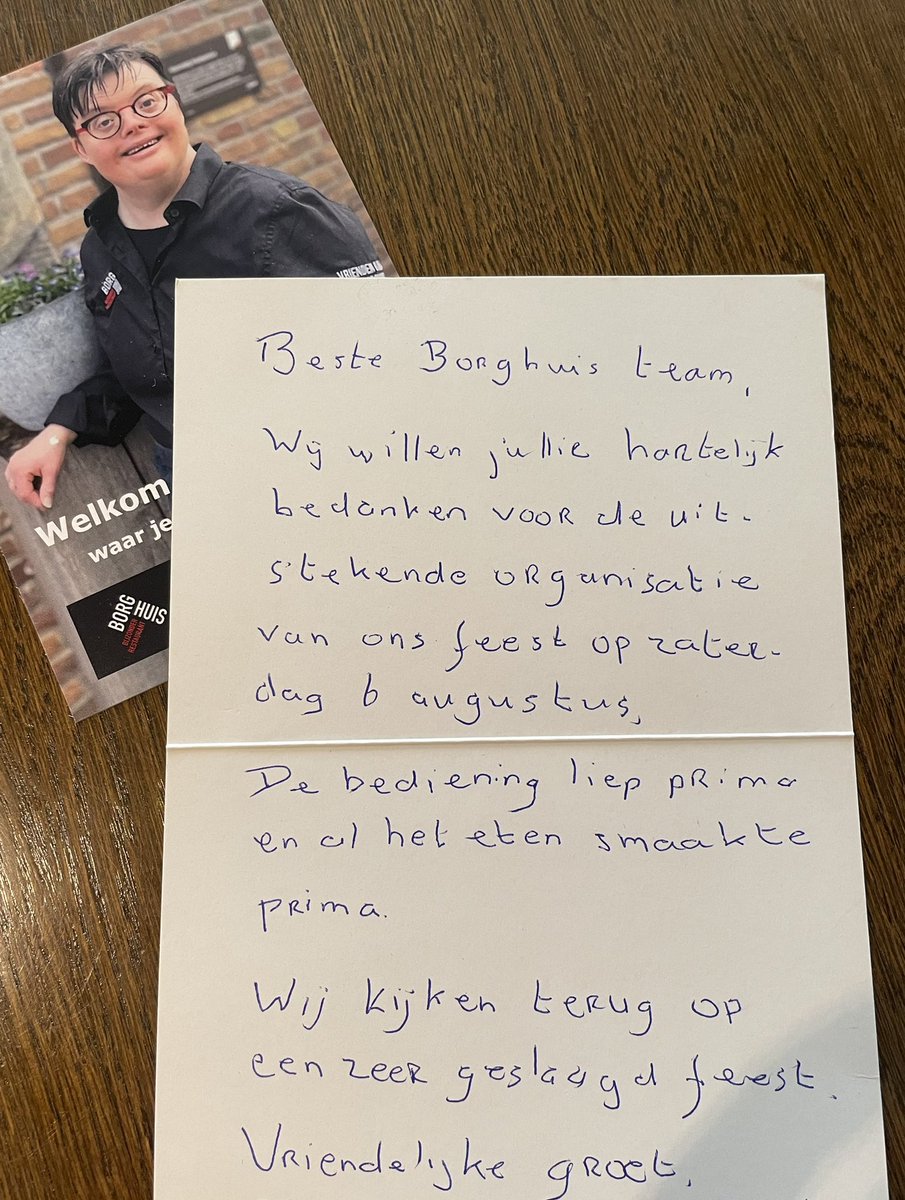 BORG
VRIENDEN
Welkom
waar je
BORG
HUIS
BIJZONDER
RESTAURANT
Beste Borghuis team,
Wij willen jullie hartelijk
bedanken voor de uit-
stekende organisatie
van ons feest op zater-
dag 6 augustus,
De bediening liep prima
en al het eten smaakte
prima.
Wij kijken terug op
een zeer geslaagd feest.
Vriendelijke groet,